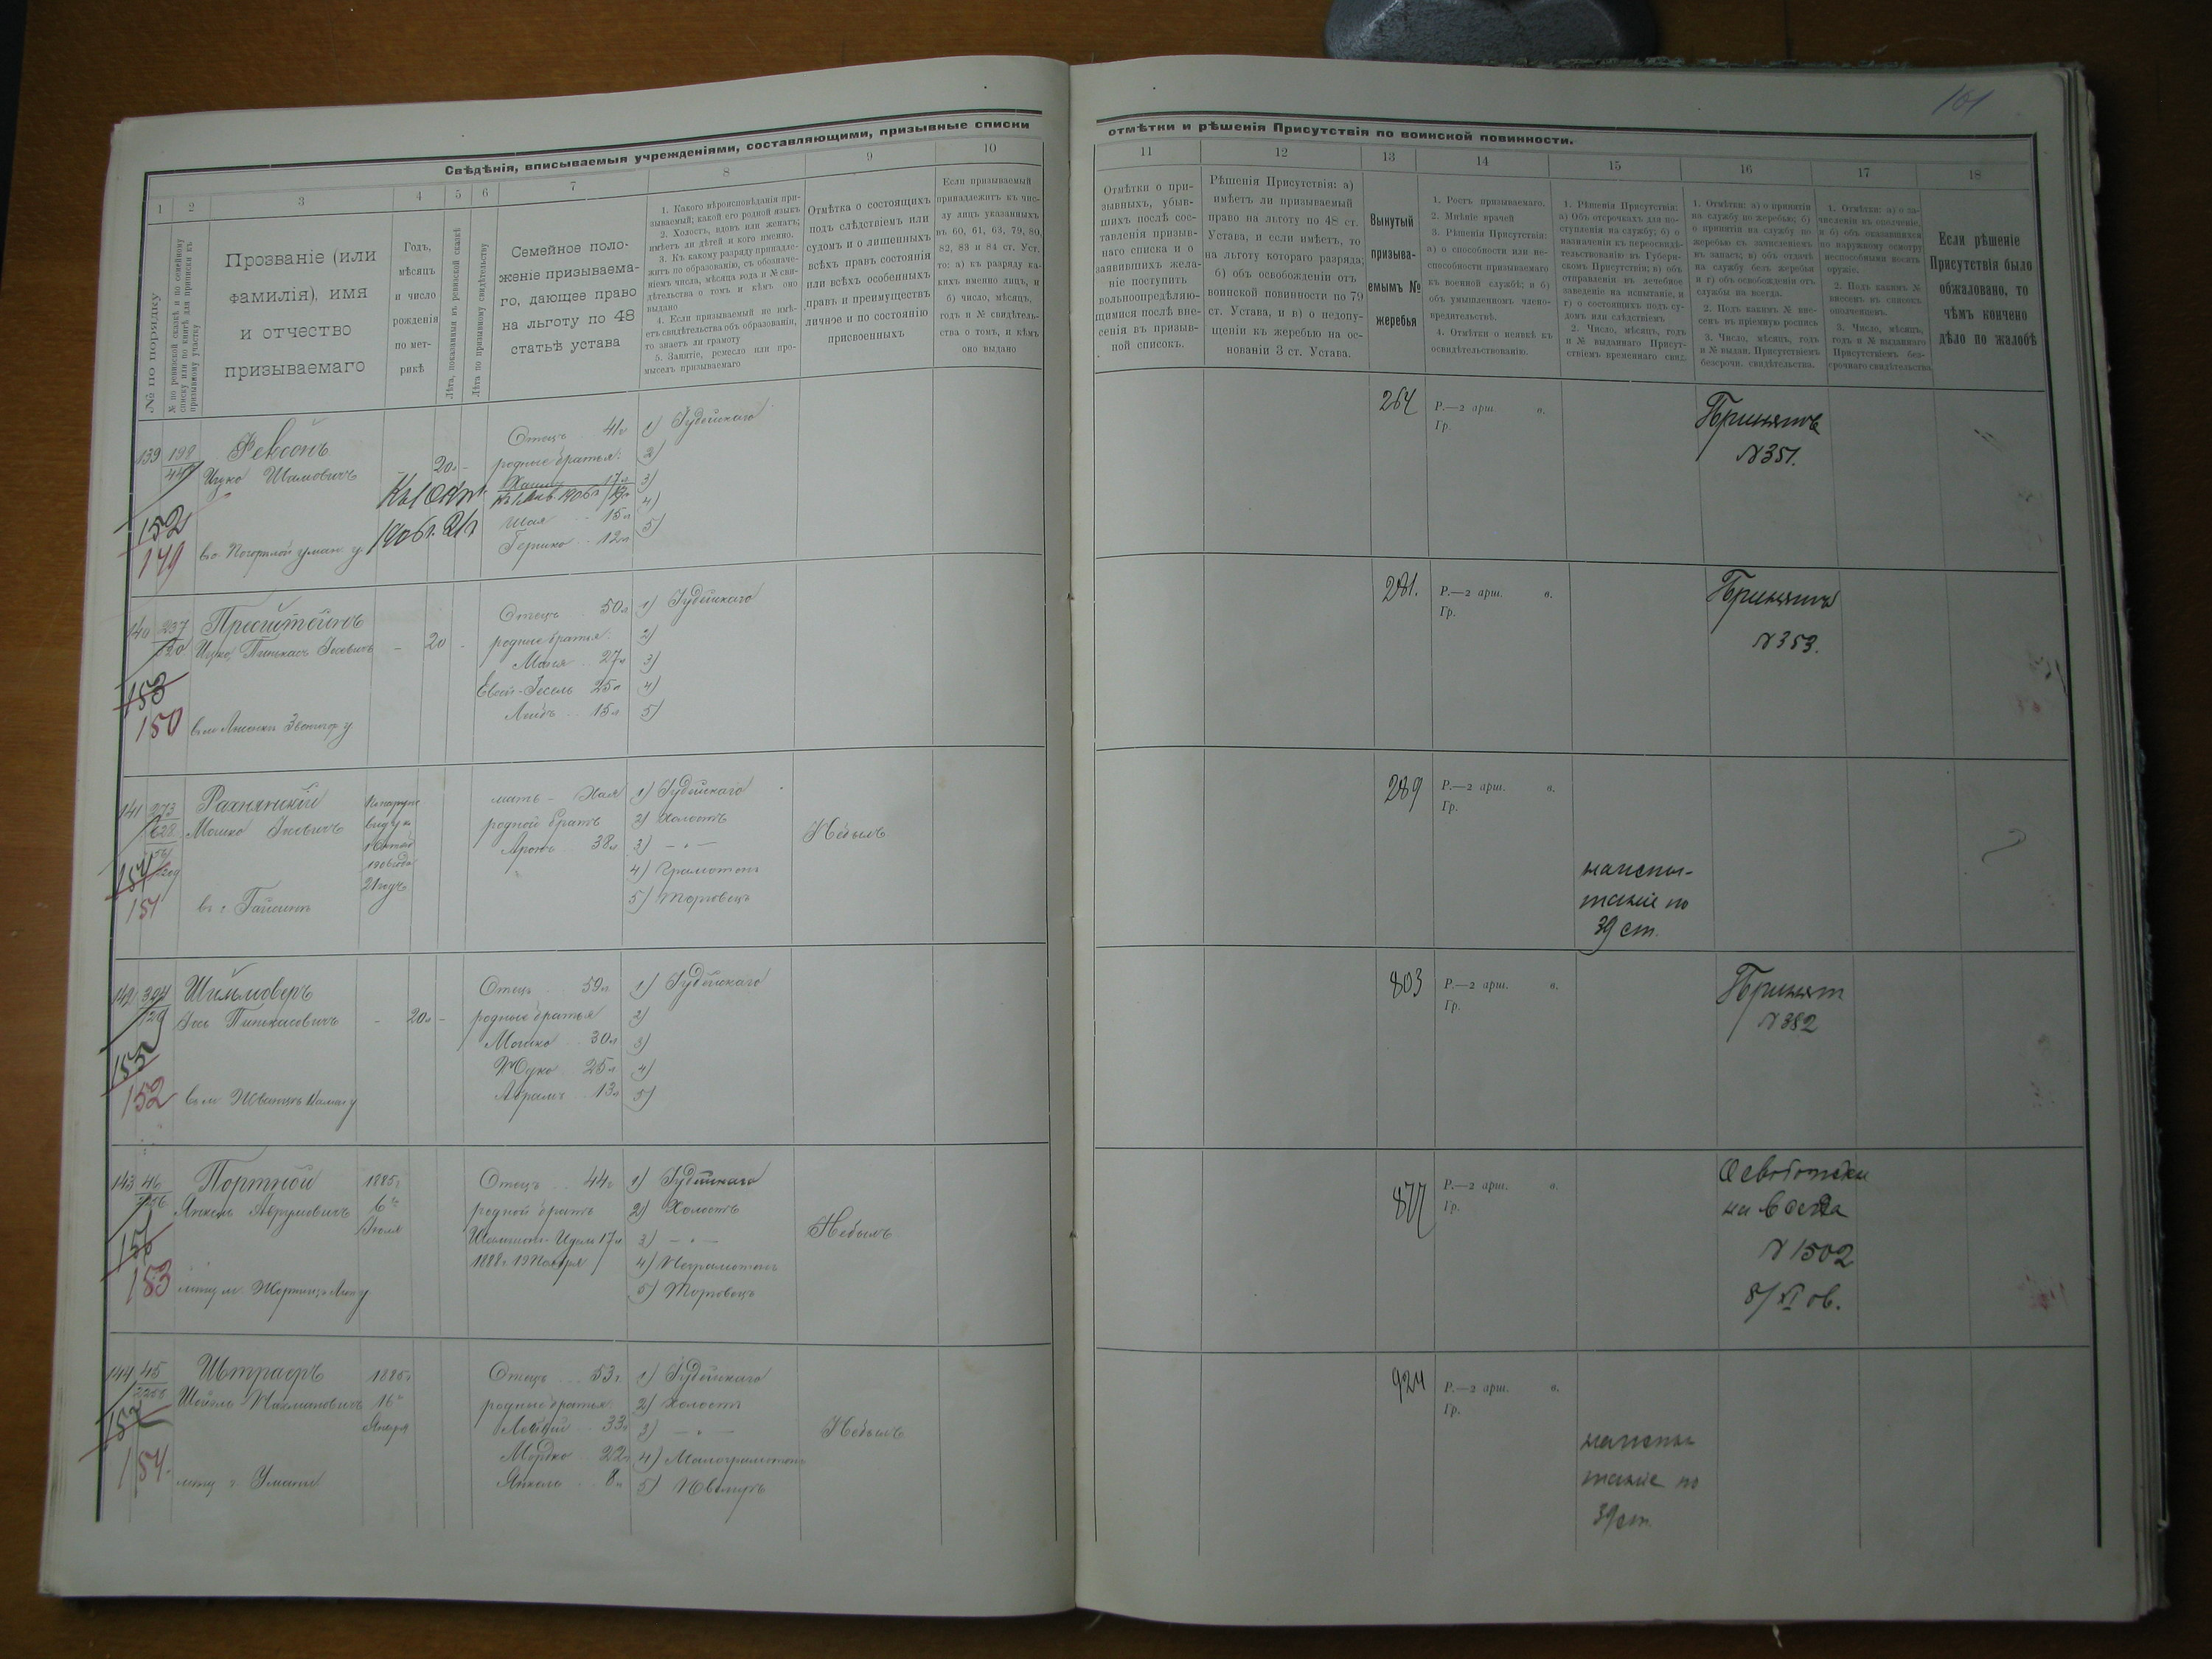 101
Свѣдѣнія, вписываемыя учрежденіями, составляющими, призывные списки
отмѣтки и рѣшенія Присутствія по воинской повинности.
1 2 3 4 5 6 7 8 9 10
11 12 13 14 15 16 17 18
№ по порядку
№ по ревизской сказкѣ и по семейному
списку или по книгѣ для приписки къ
призывному участку
Прозваніе (или
фамилія), имя
и отчество
призываемаго
Годъ,
мѣсяцъ
и число
рожденія
по мет-
рикѣ
Лѣта, показанныя въ ревизской сказкѣ
Лѣта по призывному свидѣтельству
Семейное поло-
женіе призываема-
го, дающее право
на льготу по 48
статьѣ устава
1. Какого вѣроисповѣданія при-
зываемый; какой его родной языкъ
2. Холостъ, вдовъ или женатъ;
имѣетъ ли дѣтей и кого именно.
3. Къ какому разряду принадле-
житъ по образованію, съ обозначе-
ніемъ числа, мѣсяца года и № сви-
дѣтельства о томъ и кѣмъ оно
выдано
4. Если призываемый не имѣ-
етъ свидѣтельства объ образованіи,
то знаетъ ли грамоту
5. Занятіе, ремесло или про-
мыселъ призываемаго
Отмѣтка о состоящихъ
подъ слѣдствіемъ или
судомъ и о лишенныхъ
всѣхъ правъ состоянія
или всѣхъ особенныхъ
правъ и преимуществъ
личное и по состоянію
присвоенныхъ
Если призываемый
принадлежитъ къ чис-
лу лицъ указанныхъ
въ 60, 61, 63, 79, 80,
82, 83 и 84 ст. Уст.
то: а) къ разряду ка-
кихъ именно лицъ, и
б) число, мѣсяцъ,
годъ и № свидѣтель-
ства о томъ, и кѣмъ
оно выдано
Отмѣтки о при-
зывныхъ, убыв-
шихъ послѣ сос-
тавленія призыв-
наго списка и о
заявившихъ жела-
ніе поступить
вольноопредѣляю-
щимися послѣ вне-
сенія въ призыв-
ной списокъ.
Рѣшенія Присутствія: а)
имѣетъ ли призываемый
право на льготу по 48 ст.
Устава, и если имѣетъ, то
на льготу котораго разряда;
б) объ освобожденіи отъ
воинской повинности по 79
ст. Устава, и в) о недопу-
щеніи къ жеребью на ос-
нованіи 3 ст. Устава.
Вынутый
призыва-
емымъ №
жеребья
1. Ростъ призываемаго.
2. Мнѣніе врачей
3. Рѣшенія Присутствія:
а) о способности или не-
способности призываемаго
къ военной службѣ; и б)
объ умышленномъ члено-
вредительствѣ.
4. Отмѣтки о неявкѣ къ
освидѣтельствованію.
1. Рѣшенія Присутствія:
а) Объ отсрочкахъ для по-
ступленія на службу; б) о
назначеніи къ переосвидѣ-
тельствованію въ Губерн-
скомъ Присутствіи; в) объ
отправленіи въ лечебное
заведеніе на испытаніе, и
г) о состоящихъ подъ су-
домъ или слѣдствіемъ
2. Число, мѣсяцъ, годъ
и № выданнаго Присут-
ствіемъ временнаго свид.
1. Отмѣтки: а) о принятіи
на службу по жеребью; б)
о принятіи на службу по
жеребью съ зачисленіемъ
въ запасъ; в) объ отдачѣ
на службу безъ жеребья
и г) объ освобожденіи отъ
службы на всегда.
2. Подъ какимъ № вне-
сенъ въ пріемную роспись
3. Число, мѣсяцъ, годъ
и № выдан. Присутствіемъ
безсрочн. свидѣтельства.
1. Отмѣтки: а) о за-
численіи въ ополченіе,
и б) объ оказавшихся
по наружному осмотру
неспособными носить
оружіе.
2. Подъ какимъ №
внесенъ въ списокъ
ополченцевъ.
3. Число, мѣсяцъ,
годъ и № выданнаго
Присутствіемъ без-
срочнаго свидѣтельства
Если рѣшеніе
Присутствія было
обжаловано, то
чѣмъ кончено
дѣло по жалобѣ
139 199 Фексонъ
Ицко Шамовичъ 20 -
152
149
Къ 1 Окт.
1906 г. 21 г.
Отецъ 41 г
родные братья:
Къ 1 Янв. 1906 г.
Шая 15 л
Гершко 12 л
1) Іудейскаго
2)
3)
4)
5)
264
Р.—2 арш. в.
Гр.
Принятъ
№351.
140 237
Ицко Пинхасъ Іосевичъ - 20
153
150
Отецъ 50 л
родные братья:
27 л
25 л
Лейбъ 15 л
1) Іудейскаго
2)
3)
4)
5)
281.
Р.—2 арш. в.
Гр.
Принятъ
№353.
141 273 Рахнянскій
628 Мошко
151
въ г. Гайсинѣ
По наруж.
виду къ
1 Октяб
1906 года
21 годъ
мать - Хая
родной братъ
Аронъ 38 л
1) Іудейскаго
2) Холостъ
3) - " -
4) Грамотенъ
5) Торговецъ
Не былъ
289
Р.—2 арш. в.
Гр.
на испы-
таніе по
39 ст.
142 Шиммоверъ
Іось Пинхасовичъ - 20 л -
152
Отецъ 59 л
родные братья
Мошко 30 л
25 л
Абрамъ 13 л
1) Іудейскаго
2)
3)
4)
5)
803
Р.—2 арш. в.
Гр.
Принят
№382
143 46 Портной
Янкель Аврумовичъ
153
1885 г
6го
Отецъ 44 г
родной братъ
17 л
1) Іудейскаго
2) Холостъ
3) - " -
4) Неграмотенъ
5) Торговецъ
Не былъ
877
Р.—2 арш. в.
Гр.
Освобожден
на всегда
№ 1502
8/XI 06.
144 45 Штраеръ
Нахмановичъ
154.
мѣщ. г. Умани
1885 г
16го
Января
Отецъ 53 г.
родные братья
33 л
Мордко 22 л
Янкель 8 л
1) Іудейскаго
2) Холостъ
3) - " -
4) Малограмотенъ
5)
Не былъ
924
Р.—2 арш. в.
Гр.
на испы
таніе по
39 ст.